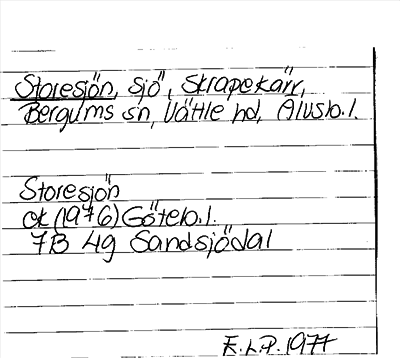 Storesjön, sjö, Skrapekärr,
Bergums sn, Vättle hd, Älvsb.l.
Storesjön
ek (1976) Göteb.l.
7B 4g Sandsjödal
E.L.P. 1977